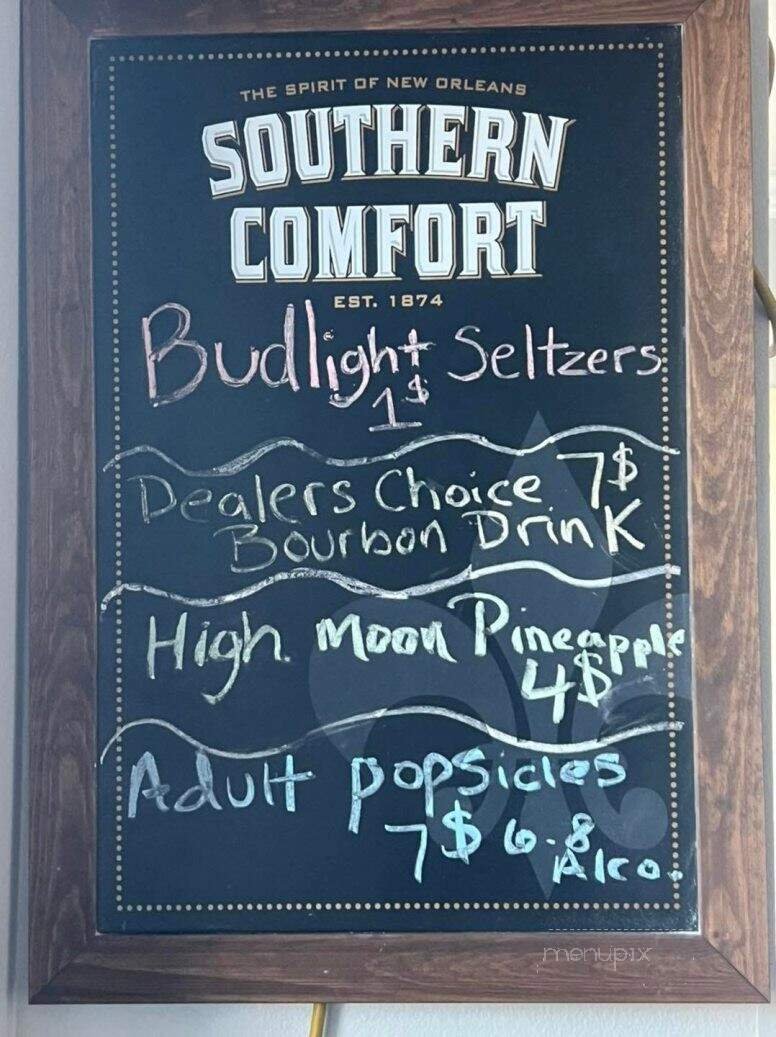 THE SPIRIT OF NEW ORLEANS
SOUTHERN
COMFORT
EST. 1874
Budlight Seltzers
1$
Dealers Choice 7$
Bourbon Drink
High Moon Pineapple
4$
Adult Popsicles
7$ 6.8
Alco.
menupix